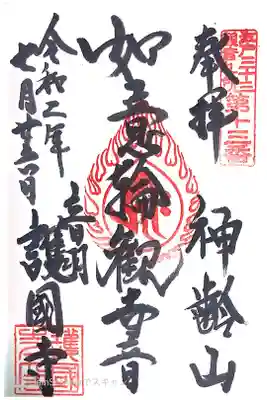 奉拝
神齢山
如意輪観世音
音羽
護國寺
令和二年
七月廿五日
第十三番
護國